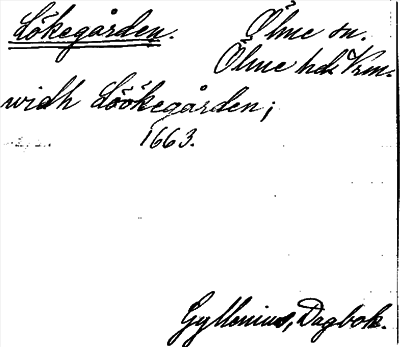 Lökegården. Ölme sn.
Ölme hd. Vrm.
widh Löökegården;
1663.
Gyllenius, Dagbok.